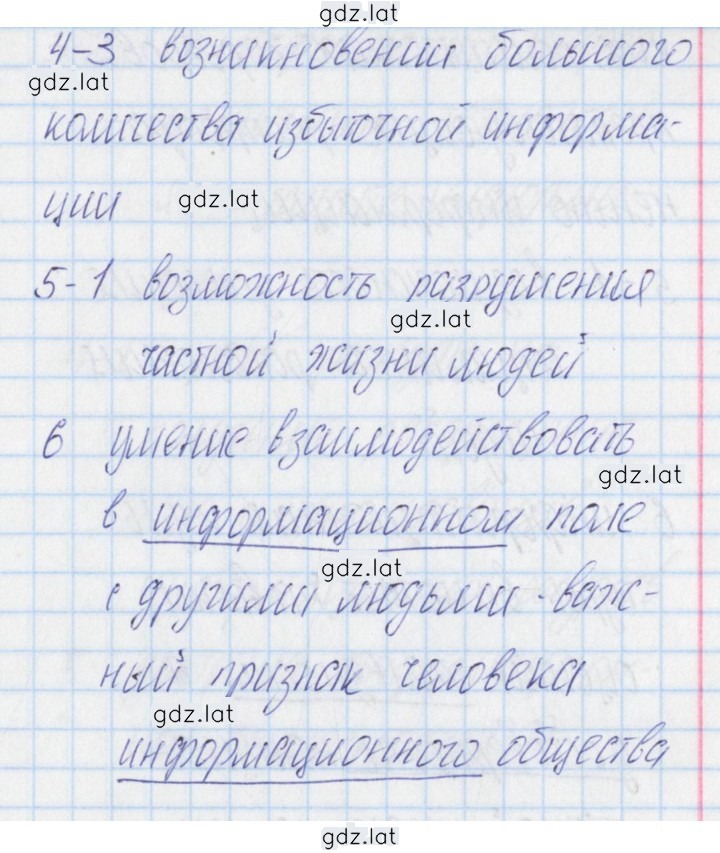 gdz.lat
4-3 возникновении большого
gdz.lat
количества избыточной информа-
ции gdz.lat
5-1 возможность разрушения
gdz.lat
частной жизни людей
6 умение взаимодействовать
gdz.lat
в информационном поле
gdz.lat
с другими людьми - важ-
ный признак человека
gdz.lat
информационного общества
gdz.lat